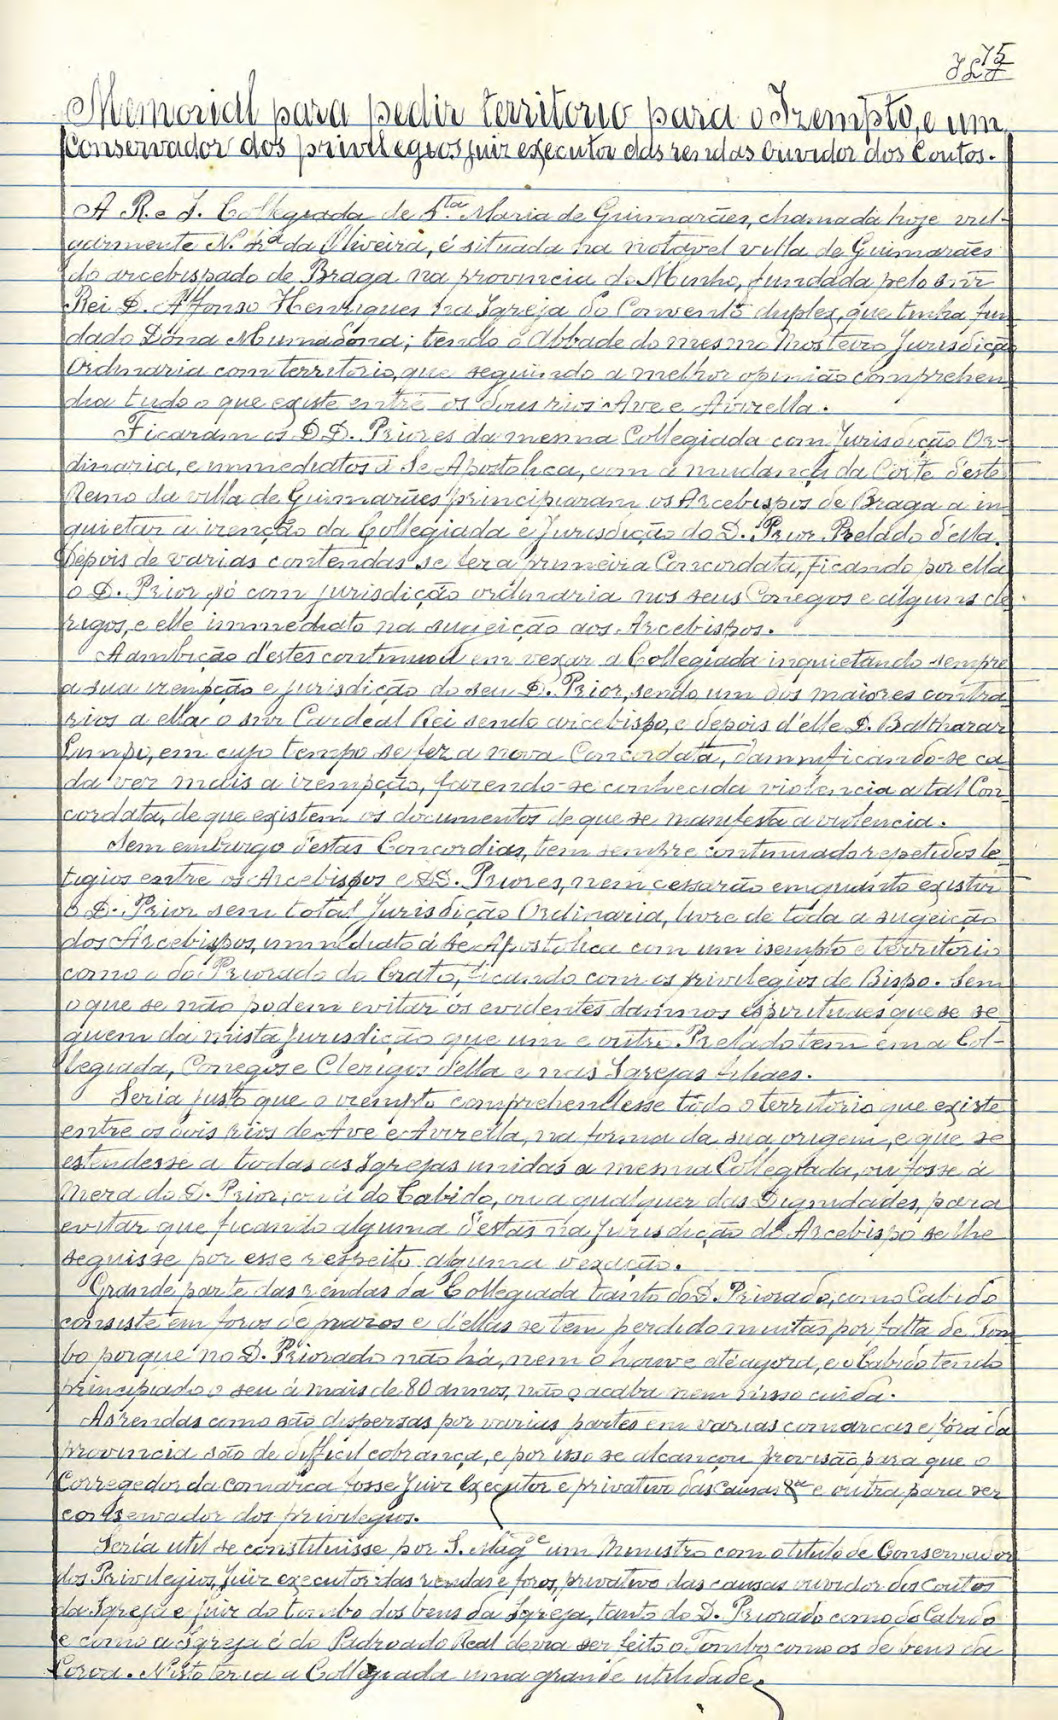 75
Memorial para pedir territorio para o Izempto, e um
Conservador dos privilegios juiz executor das rendas Ouvidor dos Coutos.
A R. e I. Collegiada de S.ta Maria de Guimarães, chamada hoje vul-
garmente N. Sr.ª da Oliveira, é situada na notavel villa de Guimarães
do arcebispado de Braga na provincia do Minho, fundada pelo snr
Rei D. Affonso Henriques na Igreja do Convento duplex, que tinha fun
dado Dona Mumadona; tendo o Abbade do mesmo Mosteiro Jurisdicção
Ordinaria com territorio, que seguindo a melhor opinião comprehen
dia tudo o que existe entre os dous rios Ave e Avizella.
Ficaram os DD. Priores da mesma Collegiada com Jurisdicção Or-
dinaria, e immediatos á Se Apostolica, com a mudança da Corte d'este
Reino da villa de Guimarães principiaram os Arcebispos de Braga a in
quietar a izenção da Collegiada e Jurisdicção do D. Prior Prelado d'ella.
Depois de varias contendas se fez a primeira Concordata, ficando por ella
o D. Prior só com jurisdicção ordinaria nos seus Conegos e alguns cle-
rigos, e elle immediato na sugeição aos Arcebispos.
A ambição d'estes continuou em vexar a Collegiada inquietando sempre
a sua izempção e jurisdição do seu D. Prior, sendo um dos maiores contra
rios a ella o snr Cardeal Rei sendo arcebispo, e depois d'elle D. Balthazar
Limpo, em cujo tempo se fez a nova Concordata, damnificando-se ca
da vez mais a izempção, fazendo-se conhecida violencia a tal Con
cordata, de que existem os documentos de que se manifesta a violencia.
Sem embargo d'estas Concordias, tem sempre continuado repetidos le
tigios entre os Arcebispos e DD. Priores, nem cessarão emquanto existir
o D. Prior sem total Jurisdição Ordinaria, livre de toda a sugeição
dos Arcebispos, immediato á Se Apostolica com um isempto e territorio
como o do Priorado do Crato, ficando com os privilegios de Bispo. Sem
o que se não podem evitar os evidentes damnos espirituaes que se se
guem da mista Jurisdição que um e outro Prelado tem em a Col-
legiada, Conegos e Clerigos d'ella e nas Igrejas filiaes.
Seria justo que o izempto comprehendesse todo o territorio que existe
entre os dois rios de Ave e Avizella, na forma da sua origem, e que se
estendesse a todas as Igrejas unidas a mesma Collegiada, ou fosse á
Meza do D. Prior, ou á do Cabido, ou a qualquer das Dignidades, para
evitar que ficando alguma d'estas na Jurisdicção do Arcebispo se lhe
seguisse por esse respeito alguma vexação.
Grande parte das rendas da Collegiada tanto do D. Priorado, como Cabido
consiste em foros de prazos e d'ellas se tem perdido muitas por falta de Tom
bo porque no D. Priorado não há, nem o houve até agora, e o Cabido tendo
principiado o seu á mais de 80 annos, não o acaba nem n'isso cuida.
As rendas como são dispersas por varias partes em varias comarcas e fóra da
provincia são de difficil cobrança, e por isso se alcançou provisão para que o
Corregedor da comarca fosse Juiz Executor e privativo das causas e outra para ser
conservador dos privilegios.
Seria util se constituisse por S. Mag.e um Ministro com o titulo de Conservador
dos Privilegios, Juiz executor das rendas e foros, privativo das causas ouvidor dos Coutos
da Igreja e Juiz do tombo dos bens da Igreja, tanto do D. Priorado como do Cabido
e como a Igreja é do Padroado Real devia ser feito o Tombo como os de bens da
Coroa. N'isto teria a Collegiada uma grande utilidade.